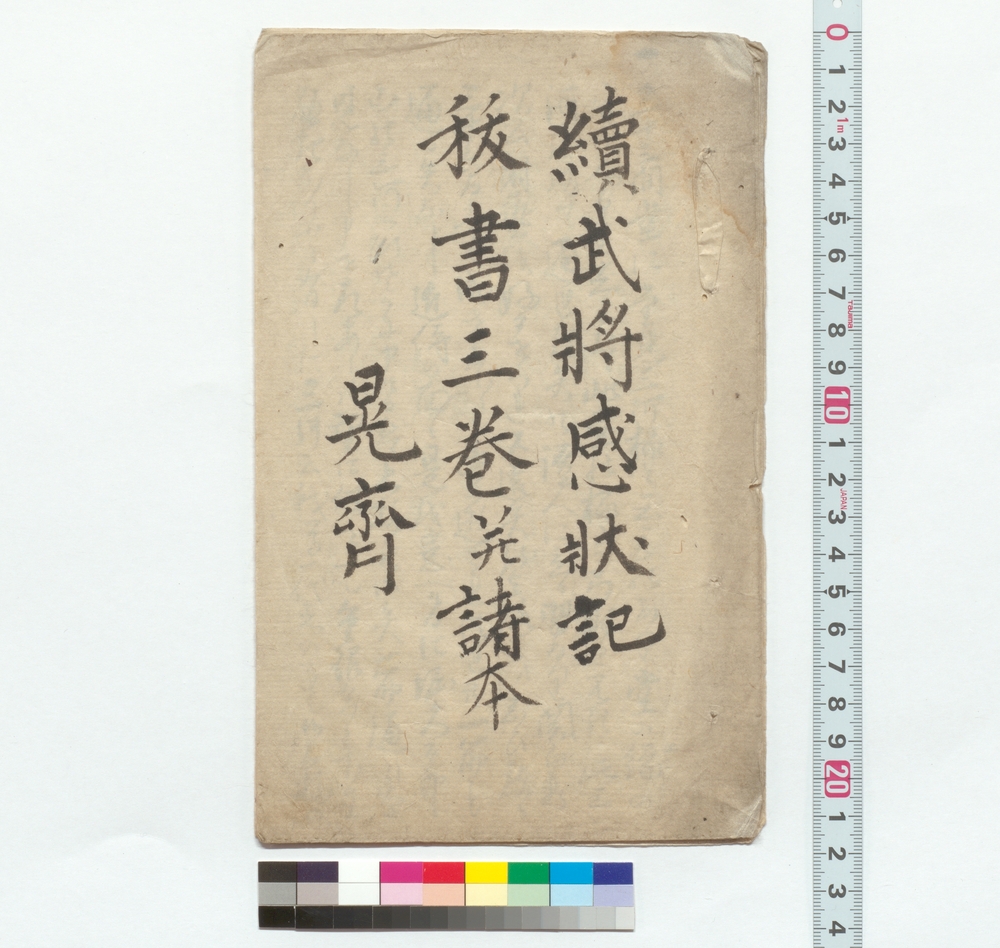 續武將感狀記
秘書三巻并諸本
晃齊
0
1
2
1m
3
4
5
6
7
Tajima
8
9
10
1
2
JAPAN
3
4
5
6
7
8
9
20
1
2
3
4